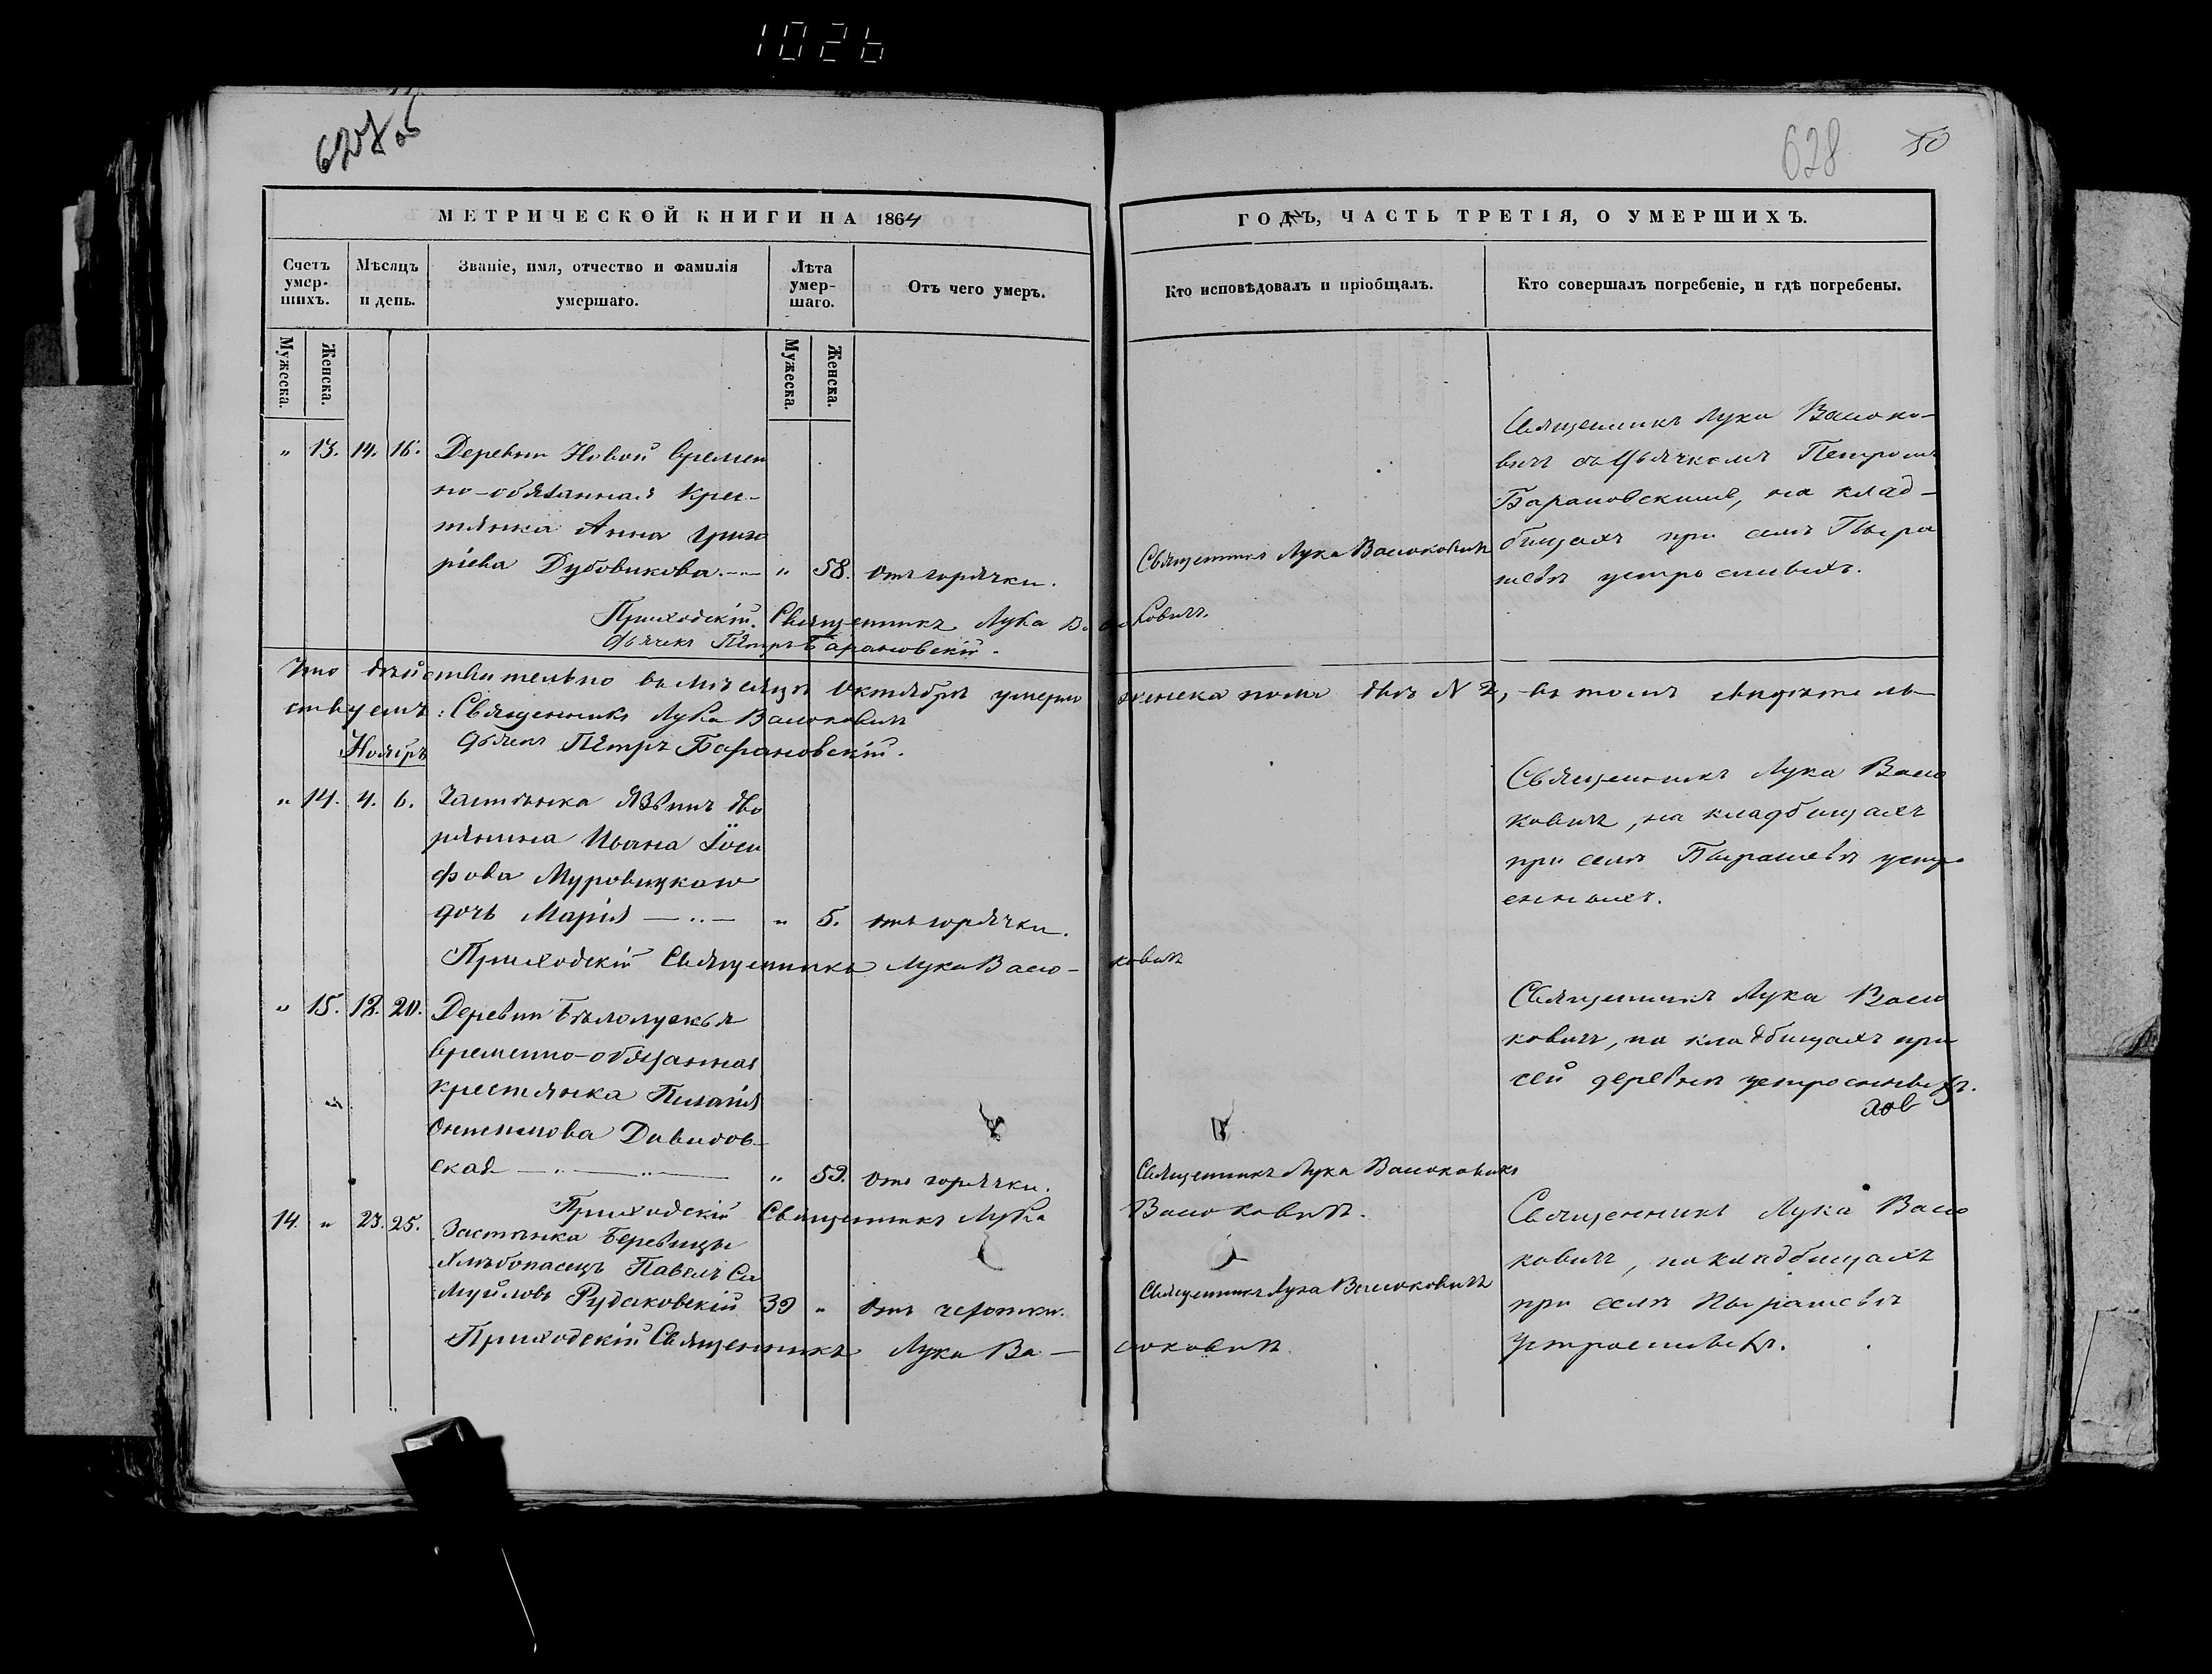 1026
627 об
628
50
МЕТРИЧЕСКОЙ КНИГИ НА 1864
ГОДЪ, ЧАСТЬ ТРЕТІЯ, О УМЕРШИХЪ.
Счетъ умер-
шихъ.
Мѣсяцъ
и день.
Званіе, имя, отчество и фамилія
умершаго.
Лѣта
умер-
шаго.
Отъ чего умеръ.
Кто исповѣдовалъ и пріобщалъ.
Кто совершалъ погребеніе, и гдѣ погребены.
Мужеска.
Женска.
Мужеска.
Женска.
" 13. 14. 16. Деревни Новой времен
но-обязанная крес-
тянка Анна Григо
ріева Дубовикова. " 58. отъ горячки.
Священникъ Лука Васюковичъ
Священникъ Лука Васюко-
вичъ съ Дьячкомъ Петромъ
Барановскимъ, на клад-
бищахъ при селѣ Пыра
шевѣ устроенныхъ.
Приходскій Священникъ Лука Васюковичъ.
Дьячекъ Петръ Барановскій.
Что дѣйствительно въ мѣсяцѣ Октябрѣ умерло женска пола двѣ N 2, въ томъ свидѣтель-
ствуемъ: Священникъ Лука Васюковичъ
Дьячекъ Петръ Барановскій.
Ноябрь
" 14. 4. 6. Застѣнка дво
рянина Ивана Іоси
фова Муровицкаго
дочь Марія " 5. отъ горячки.
Священникъ Лука Васю
ковичъ, на кладбищахъ
при селѣ Пырашевѣ устро
енныхъ.
Приходскій Священникъ Лука Васю-ковичъ
" 15. 18. 20. Деревни
временно-обязанная
крестянка Пелагія
Давидов-
ская " 59. отъ горячки.
Священникъ Лука Васюковичъ
Священникъ Лука Васю
ковичъ, на кладбищахъ при
сей деревнѣ устроенныхъ.
Приходскій Священникъ Лука Васюковичъ.
14. " 23. 25. Застѣнка Беревицы
хлѣбопашецъ Павелъ Са
муйловъ Рудаковскій 39 " отъ чахотки.
Священникъ Лука Васюковичъ
Священникъ Лука Васю
ковичъ, на кладбищахъ
при селѣ Пырашевѣ
устроенныхъ.
Приходскій Священникъ Лука Ва-сюковичъ.